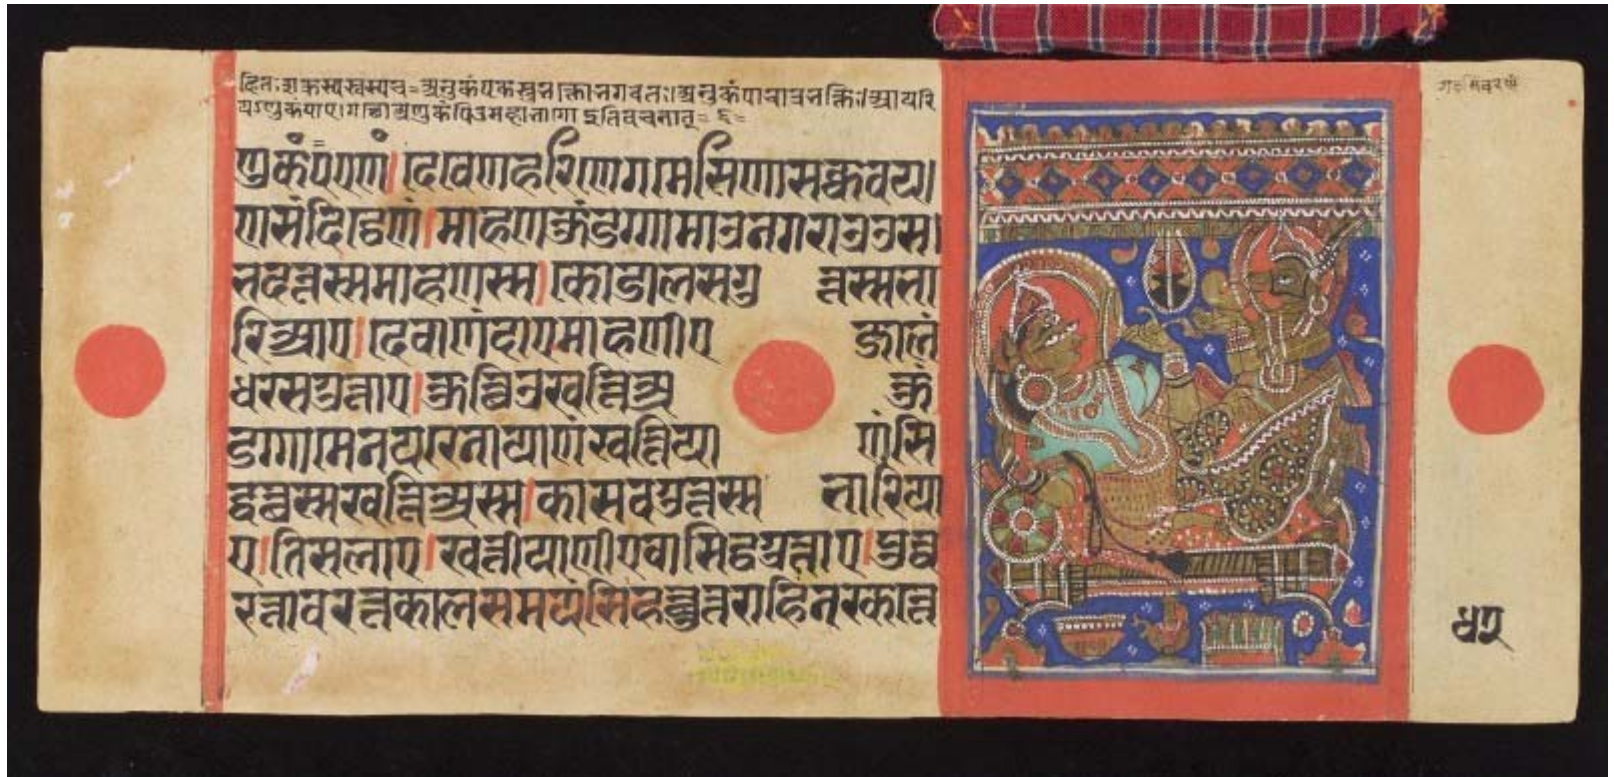 हितः शक्रस्य स्वस्य च = अनुकंपकस्तु भक्तो भगवतः। अनुकंपा चात्र भक्तिः। आयरि
यऽणुकंपाए। गच्छो अणुकंपिउ महाभागो इति वचनात् = ६ =
णुकंपएणं। देवेण हरिणेगमेसिणा सक्कवय।
णसंदिट्ठेणं। माहणकुंडग्गामाउ नगराउ उसभ
दत्तस्स माहणस्स। कोडालसगुत्तस्स भा
रिआए। देवाणंदाए माहणीए जालं
धरसगुत्ताए। कुच्छिउ खत्तिअकुं
डग्गामे नयरे नायाणं खत्तियाणं सि
द्धत्थस्स खत्तिअस्स। कासवगुत्तस्स भारिया
ए। तिसलाए। खत्तीयाणीए वासिट्ठगुत्ताए। पुव्व
रत्तावरत्तकालसमयंसि हत्थुत्तराहिं नरकत्ते